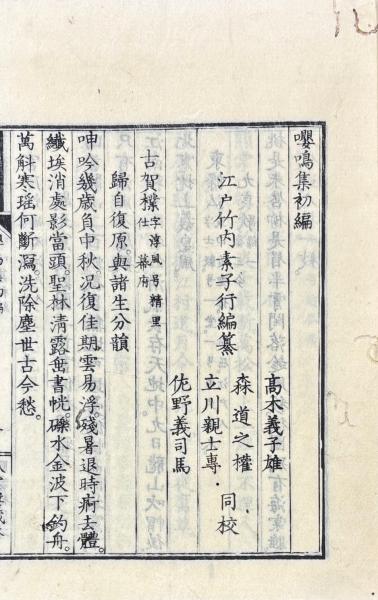 嚶鳴集初編
江戸竹内素子行編纂
髙木義子雄
森道之權
立川親士專・同校
佐野義司馬
古賀樸字淳風号精里仕幕府
歸自復原與諸生分韻
呻吟幾歳負中秋況復佳期雲易浮殘暑退時痾去體。
纖埃消處影當頭。聖林清露書幌。礫水金波下釣舟。
萬斛寒瑶何斷瀉。洗除塵世古今愁。